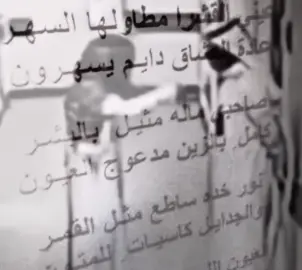 عني القشرا مطاولها السهر
عادة العشاق دايم يسهرون
صاحبي ماله مثيل بالبشر
كامل بالزين مدعوج العيون
نور خده ساطع مثل القمر
والجدايل كاسيات للمتون